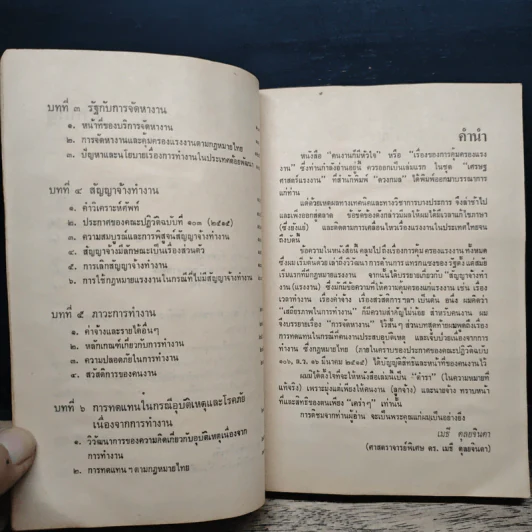 บทที่ ๓ รัฐกับการจัดหางาน
๑. หน้าที่ของบริการจัดหางาน
๒. การจัดหางานและคุ้มครองแรงงานตามกฎหมายไทย
๓. ปัญหาและนโยบายเรื่องการทำงานในประเทศด้อยพัฒนา
บทที่ ๔ สัญญาจ้างทำงาน
๑. คำวิเคราะห์ศัพท์
๒. ประกาศของคณะปฏิวัติฉบับที่ ๑๐๓ (๒๕๑๕)
๓. ความสมบูรณ์และการพิสูจน์สัญญาจ้างทำงาน
๔. สัญญาจ้างมีลักษณะเป็นเรื่องส่วนตัว
๕. การเลิกสัญญาจ้างทำงาน
๖. การใช้กฎหมายแรงงานในกรณีที่ไม่มีสัญญาจ้างทำงาน
บทที่ ๕ ภาวะการทำงาน
๑. ค่าจ้างและรายได้อื่นๆ
๒. หลักเกณฑ์เกี่ยวกับการทำงาน
๓. ความปลอดภัยในการทำงาน
๔. สวัสดิการของคนงาน
บทที่ ๖ การทดแทนในกรณีอุบัติเหตุและโรคภัย
เนื่องจากการทำงาน
๑. วิวัฒนาการของความคิดเกี่ยวกับอุบัติเหตุเนื่องจาก
การทำงาน
๒. การทดแทนฯ ตามกฎหมายไทย
คำนำ
หนังสือ "คนงานก็มีหัวใจ" หรือ "เรื่องของการคุ้มครองแรง
งาน" ซึ่งท่านกำลังอ่านอยู่นี้ ควรจะออกเป็นเล่มแรก ในชุด "เศรษฐ
ศาสตร์แรงงาน" ที่สำนักพิมพ์ "ดวงกมล" ได้พิมพ์ออกมาบรรณาการ
แก่ท่าน
แต่ด้วยเหตุผลทางเทคนิคและทางวิชาการบางประการ จึงล่าช้าไป
และเพิ่งออกสู่ตลาด ข้อขัดข้องดังกล่าวมีผลให้ผมได้มีเวลาแก้ไขภาษา
(ซึ่งยังแย่) และติดตามการเคลื่อนไหวเรื่องแรงงานในประเทศไทยจน
ถึงบัดนี้
ข้อความในหนังสือนี้ คลุมไปถึงเรื่องการคุ้มครองแรงงานทั้งหมด
ซึ่งผมเริ่มต้นด้วย เล่าถึงวิวัฒนาการด้านการแทรกแซงของรัฐตั้งแต่สมัย
เริ่มแรกที่มีกฎหมายแรงงาน จากนั้นได้บรรยายเกี่ยวกับ "สัญญาจ้างทำ
งาน (แรงงาน) ซึ่งมักมีข้อความที่ให้ความคุ้มครองแก่ผู้ใช้แรงงาน เช่น เรื่อง
เวลาทำงาน เรื่องค่าจ้าง เรื่องสวัสดิการ ฯลฯ เป็นต้น อนึ่ง ผมคิดว่า
"เสถียรภาพในการทำงาน" ก็มีความสำคัญไม่น้อย สำหรับคนงาน ผม
จึงบรรยายเรื่อง "การจัดหางาน" ไว้สั้นๆ ส่วนบทสุดท้ายผมพูดถึงเรื่อง
การทดแทนในกรณีที่คนงานประสบอุบัติเหตุ และเจ็บป่วยเนื่องจากการ
ทำงาน ซึ่งกฎหมายไทย (ภายในคราบของประกาศของคณะปฏิวัติฉบับ
๑๐๓, ล.ว. ๑๖ มีนาคม ๒๕๑๕) ได้บัญญัติสิทธิและหน้าที่ของคนงานไว้
ผมมิได้ตั้งใจที่จะให้หนังสือเล่มนี้เป็น "ตำรา" (ในความหมายที่
แท้จริง) เพราะมุ่งแต่เพียงให้คนงาน (ลูกจ้าง) และนายจ้าง ทราบหน้า
ที่และสิทธิของตนเพียง "คร่าวๆ" เท่านั้น
การติชมจากท่านผู้อ่าน จะเป็นพระคุณแก่ผมเป็นอย่างยิ่ง
เมธี ดุลยจินดา
(ศาสตราจารย์พิเศษ ดร. เมธี ดุลยจินดา)